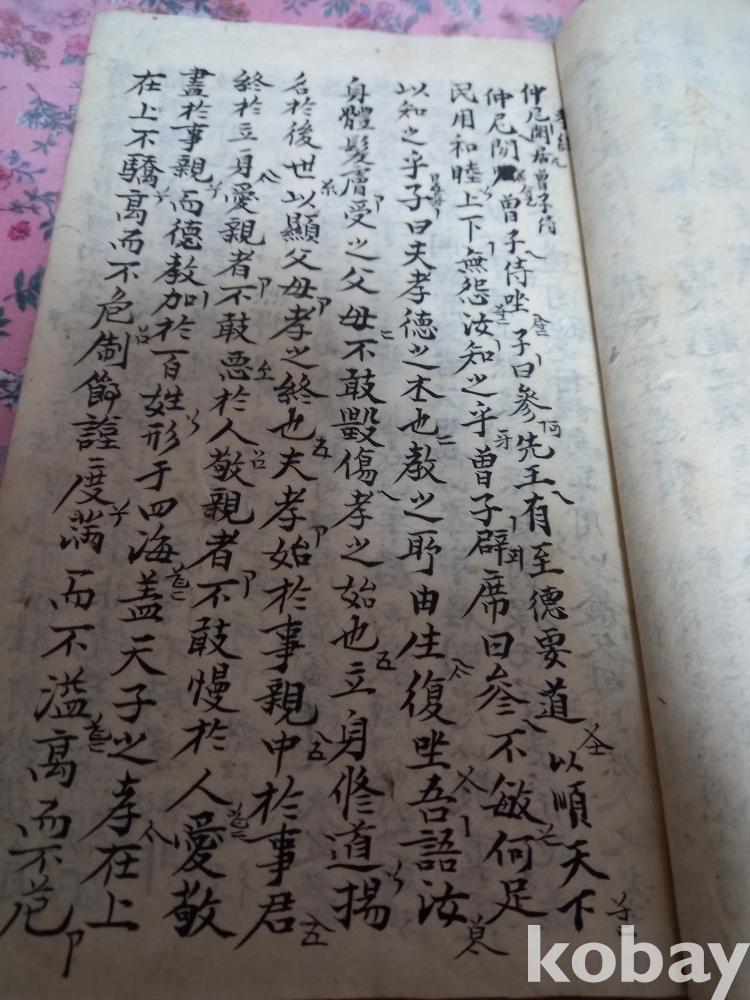 仲尼閒居曾子侍
仲尼閒曾子侍坐子曰參先王有至德要道以順天下
民用和睦上下無怨汝知之乎曾子辟席曰參不敏何足
以知之乎子曰夫孝德之本也教之所由生復坐吾語汝
身體髮膚受之父母不敢毀傷孝之始也立身修道揚
名於後世以顯父母孝之終也夫孝始於事親中於事君
終於立身愛親者不敢惡於人敬親者不敢慢於人愛敬
盡於事親而德教加於百姓形于四海盖天子之孝在上
在上不驕高而不危制節謹度滿而不溢高而不危
kobay